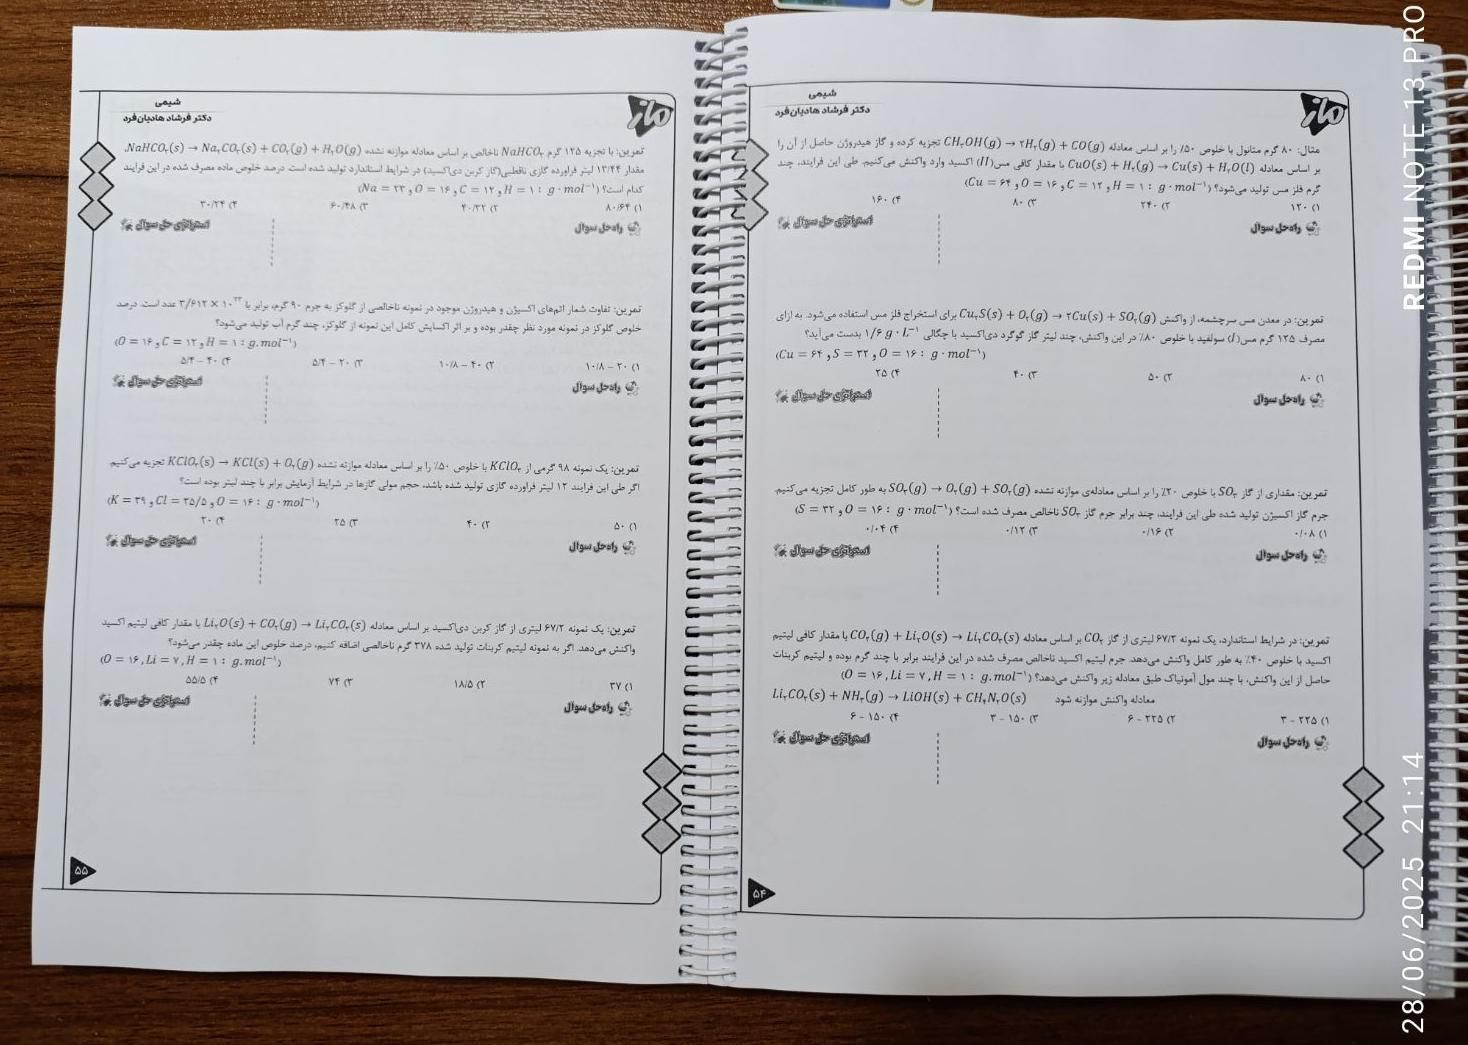 شیمی
دکتر فرشاد هادیان‌فرد
ماز
مثال: ۸۰ گرم متانول با خلوص ۵۰٪ را بر اساس معادله CH₃OH(g) → ۲H₂(g) + CO(g) تجزیه کرده و گاز هیدروژن حاصل از آن را
بر اساس معادله CuO(s) + H₂(g) → Cu(s) + H₂O(l) با مقدار کافی مس(II) اکسید وارد واکنش می‌کنیم. طی این فرایند، چند
گرم فلز مس تولید می‌شود؟ (Cu = ۶۴ و O = ۱۶ و C = ۱۲ و H = ۱ : g·mol⁻¹)
۱) ۱۲۰ ۲) ۲۴۰ ۳) ۸۰ ۴) ۱۶۰
راه‌حل سوال استراتژی حل سوال
تمرین: در معدن مس سرچشمه، از واکنش Cu₂S(s) + O₂(g) → ۲Cu(s) + SO₂(g) برای استخراج فلز مس استفاده می‌شود. به ازای
مصرف ۱۲۵ گرم مس(I) سولفید با خلوص ۸۰٪ در این واکنش، چند لیتر گاز گوگرد دی‌اکسید با چگالی ۱/۶ g·L⁻¹ بدست می‌آید؟
(Cu = ۶۴ و S = ۳۲ و O = ۱۶ : g·mol⁻¹)
۱) ۸۰ ۲) ۵۰ ۳) ۴۰ ۴) ۲۵
راه‌حل سوال استراتژی حل سوال
تمرین: مقداری از گاز SO₃ با خلوص ۲۰٪ را بر اساس معادله‌ی موازنه نشده SO₃(g) → O₂(g) + SO₂(g) به طور کامل تجزیه می‌کنیم.
جرم گاز اکسیژن تولید شده طی این فرایند، چند برابر جرم گاز SO₃ ناخالص مصرف شده است؟ (S = ۳۲ و O = ۱۶ : g·mol⁻¹)
۱) ۰/۰۸ ۲) ۰/۱۶ ۳) ۰/۱۲ ۴) ۰/۰۴
راه‌حل سوال استراتژی حل سوال
تمرین: در شرایط استاندارد، یک نمونه ۶۷/۲ لیتری از گاز CO₂ بر اساس معادله CO₂(g) + Li₂O(s) → Li₂CO₃(s) با مقدار کافی لیتیم
اکسید با خلوص ۴۰٪ به طور کامل واکنش می‌دهد. جرم لیتیم اکسید ناخالص مصرف شده در این فرایند برابر با چند گرم بوده و لیتیم کربنات
حاصل از این واکنش، با چند مول آمونیاک طبق معادله زیر واکنش می‌دهد؟ (O = ۱۶ , Li = ۷ , H = ۱ : g.mol⁻¹)
معادله واکنش موازنه شود Li₂CO₃(s) + NH₃(g) → LiOH(s) + CH₄N₂O(s)
۱) ۲۲۵ - ۳ ۲) ۲۲۵ - ۶ ۳) ۱۵۰ - ۳ ۴) ۱۵۰ - ۶
راه‌حل سوال استراتژی حل سوال
۵۴
شیمی
دکتر فرشاد هادیان‌فرد
ماز
تمرین: با تجزیه ۱۲۵ گرم NaHCO₃ ناخالص بر اساس معادله موازنه نشده NaHCO₃(s) → Na₂CO₃(s) + CO₂(g) + H₂O(g).
مقدار ۱۳/۴۴ لیتر فراورده گازی ناقطبی(گاز کربن دی‌اکسید) در شرایط استاندارد تولید شده است. درصد خلوص ماده مصرف شده در این فرایند
کدام است؟ (Na = ۲۳ و O = ۱۶ و C = ۱۲ و H = ۱ : g·mol⁻¹)
۱) ۸۰/۶۴ ۲) ۴۰/۳۲ ۳) ۶۰/۴۸ ۴) ۳۰/۲۴
راه‌حل سوال استراتژی حل سوال
تمرین: تفاوت شمار اتم‌های اکسیژن و هیدروژن موجود در نمونه ناخالصی از گلوکز به جرم ۹۰ گرم، برابر با ۳/۶۱۲ × ۱۰²³ عدد است. درصد
خلوص گلوکز در نمونه مورد نظر چقدر بوده و بر اثر اکسایش کامل این نمونه از گلوکز، چند گرم آب تولید می‌شود؟
(O = ۱۶ و C = ۱۲ و H = ۱ : g.mol⁻¹)
۱) ۲۰ - ۱۰/۸ ۲) ۴۰ - ۱۰/۸ ۳) ۲۰ - ۵/۴ ۴) ۴۰ - ۵/۴
راه‌حل سوال استراتژی حل سوال
تمرین: یک نمونه ۹۸ گرمی از KClO₃ با خلوص ۵۰٪ را بر اساس معادله موازنه نشده KClO₃(s) → KCl(s) + O₂(g) تجزیه می‌کنیم.
اگر طی این فرایند ۱۲ لیتر فراورده گازی تولید شده باشد، حجم مولی گازها در شرایط آزمایش برابر با چند لیتر بوده است؟
(K = ۳۹ و Cl = ۳۵/۵ و O = ۱۶ : g·mol⁻¹)
۱) ۵۰ ۲) ۴۰ ۳) ۲۵ ۴) ۲۰
راه‌حل سوال استراتژی حل سوال
تمرین: یک نمونه ۶۷/۲ لیتری از گاز کربن دی‌اکسید بر اساس معادله Li₂O(s) + CO₂(g) → Li₂CO₃(s) با مقدار کافی لیتیم اکسید
واکنش می‌دهد. اگر به نمونه لیتیم کربنات تولید شده ۳۷۸ گرم ناخالصی اضافه کنیم، درصد خلوص این ماده چقدر می‌شود؟
(O = ۱۶ , Li = ۷ , H = ۱ : g.mol⁻¹)
۱) ۳۷ ۲) ۱۸/۵ ۳) ۷۴ ۴) ۵۵/۵
راه‌حل سوال استراتژی حل سوال
۵۵
REDMI NOTE 13 PRO
28/06/2025 21:14